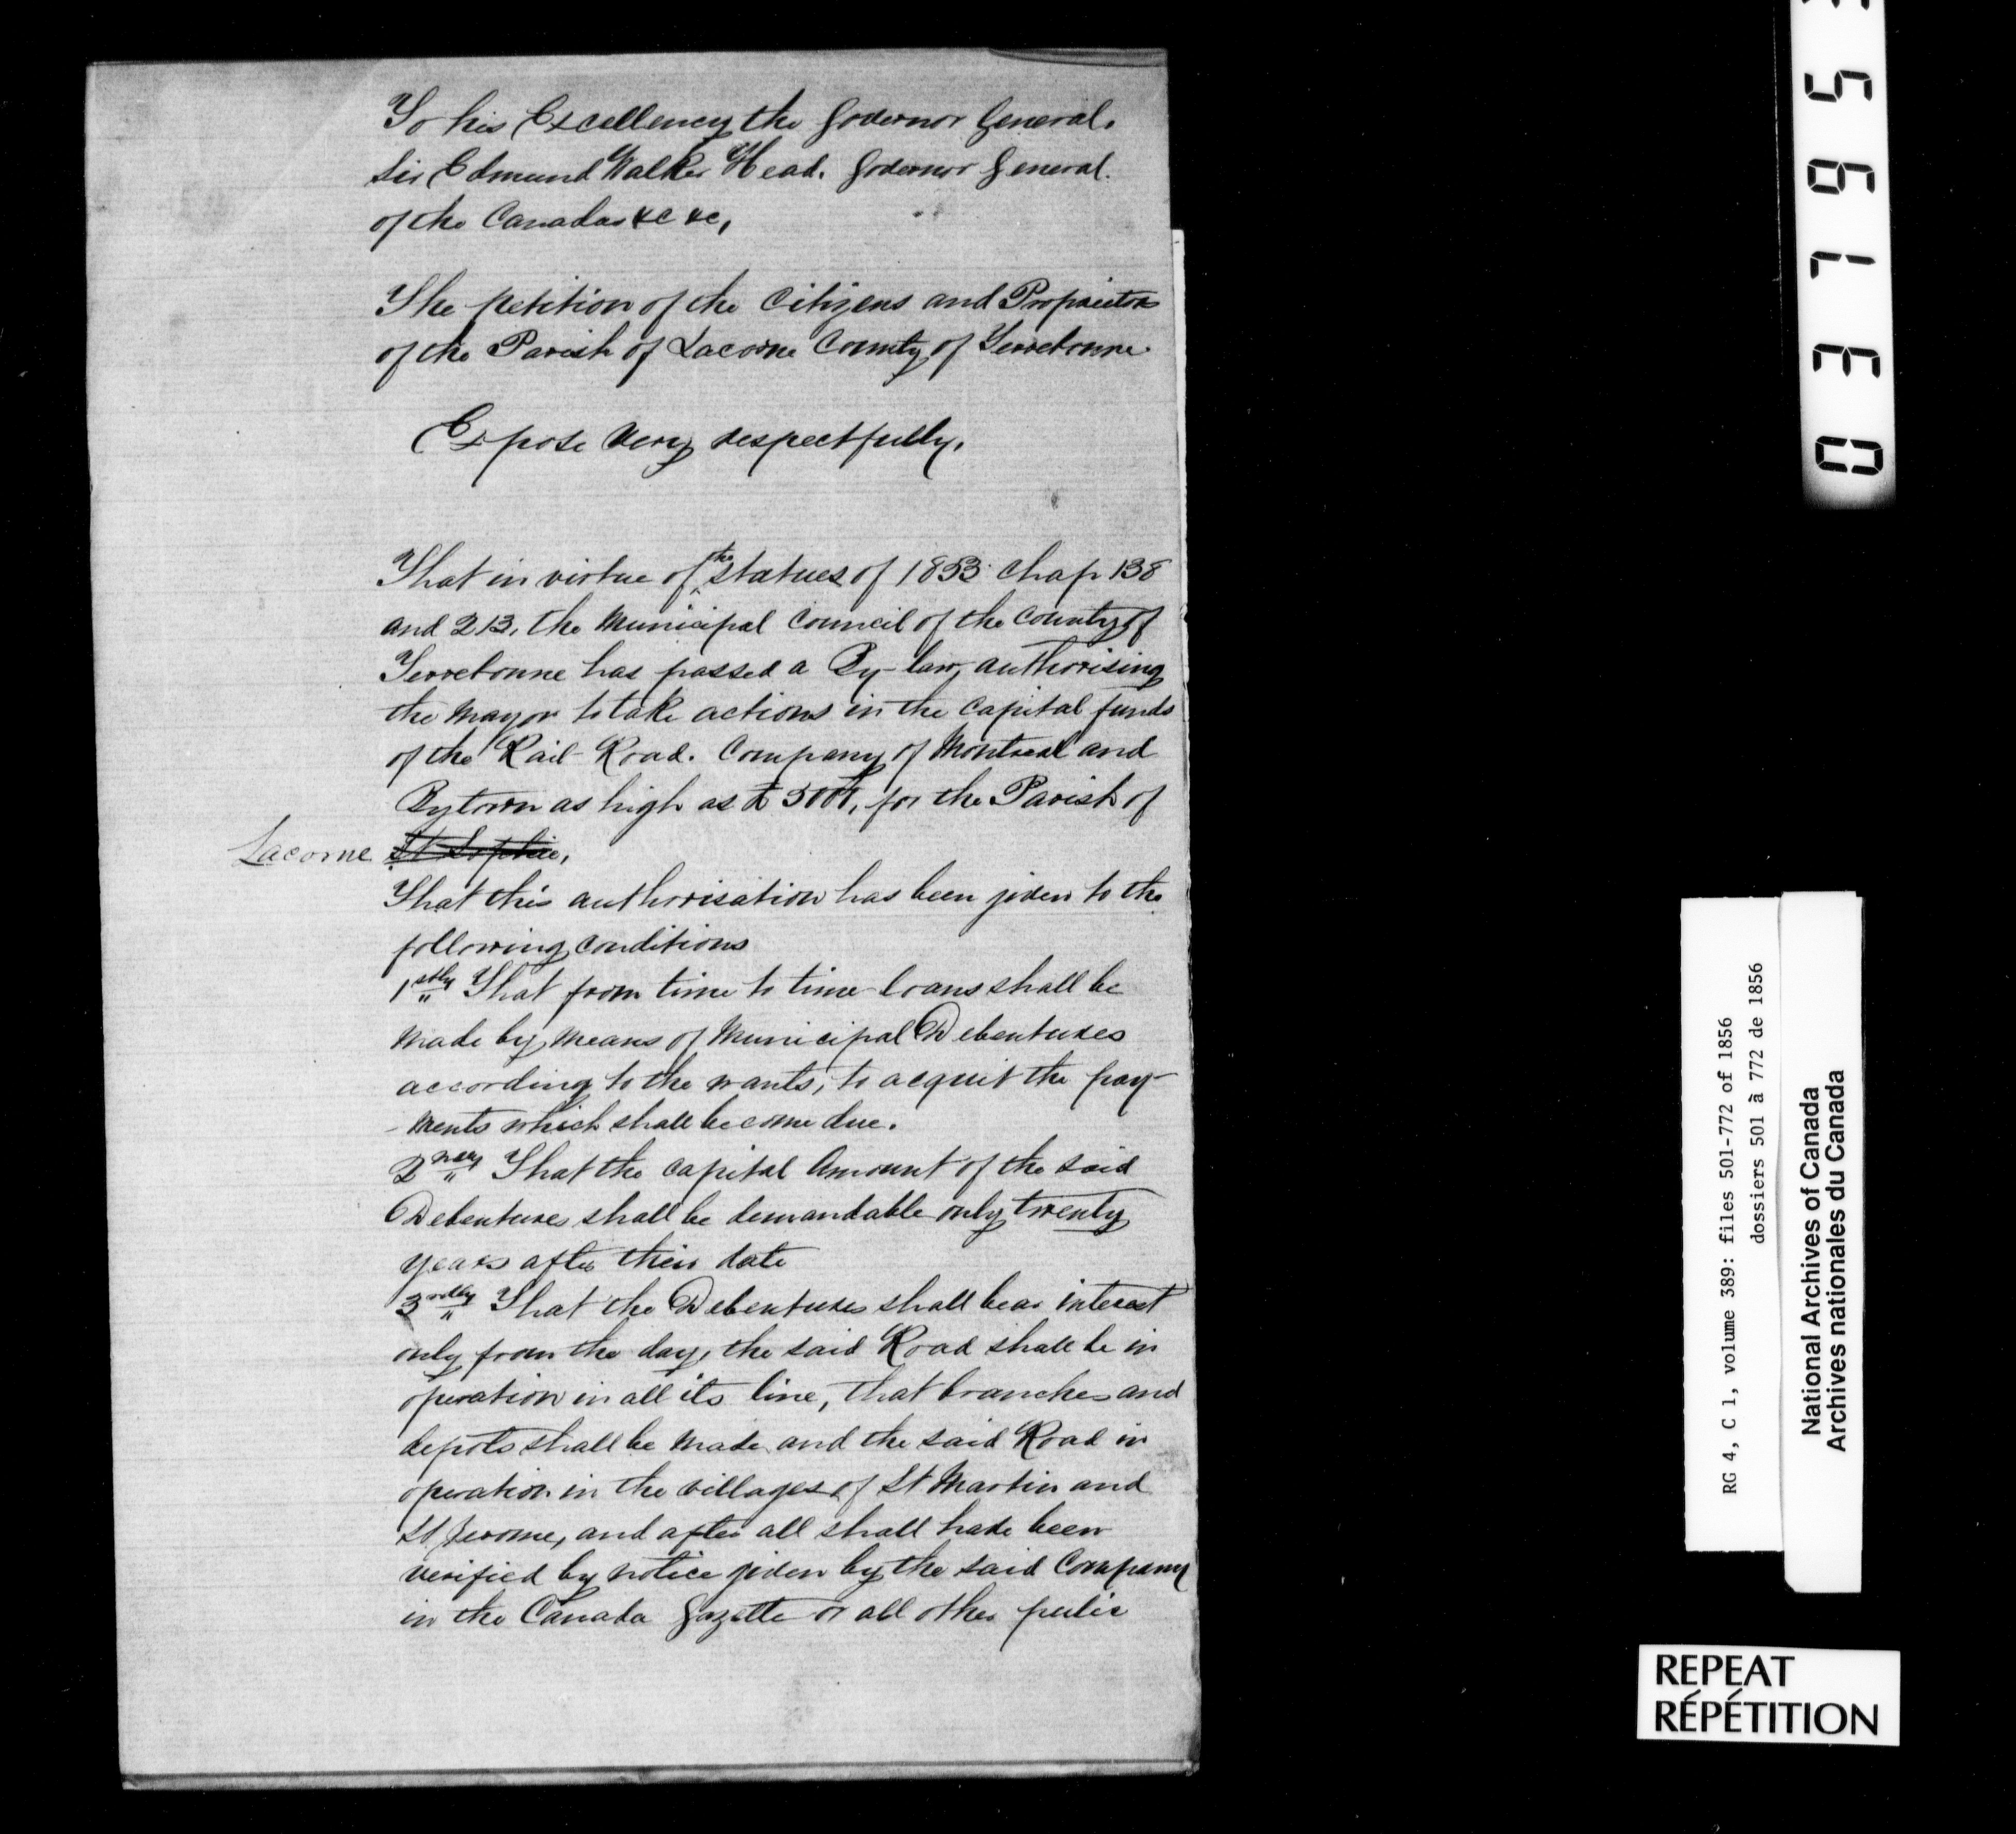 To his Excellency the Governor General.
Sir Edmund Walker Head. Governor General.
of the Canadas &c &c,
The petition of the Citizens and Proprietors
of the Parish of Lacorne County of Terrebonne
Expose very respectfully,
That in virtue of the statues of 1853 chap 138
and 213, the Municipal Council of the County of
Terrebonne has passed a By-law, authorising
the Mayor to take actions in the capital funds
of the Rail-Road. Company of Montreal and
Bytown as high as £ 5000, for the Parish of
Lacorne St Sophie,
That this authorisation has been given to the
following conditions
1stly That from time to time loans shall be
made by means of Municipal Debentures
according to the wants, to acquit the pay-
-ments which shall become due.
2ndly That the capital Amount of the said
Debentures shall be demandable only twenty
years after their date
3rdly That the Debentures shall bear interest
only from the day, the said Road shall be in
operation in all its line, that branches and
depots shall be made and the said Road in
operation in the villages of St Martin and
St Jerome, and after all shall have been
verified by notice given by the said Company
in the Canada Gazette or all other public
RG 4, C 1, volume 389: files 501-772 of 1856
dossiers 501 à 772 de 1856
National Archives of Canada
Archives nationales du Canada
REPEAT
RÉPÉTITION